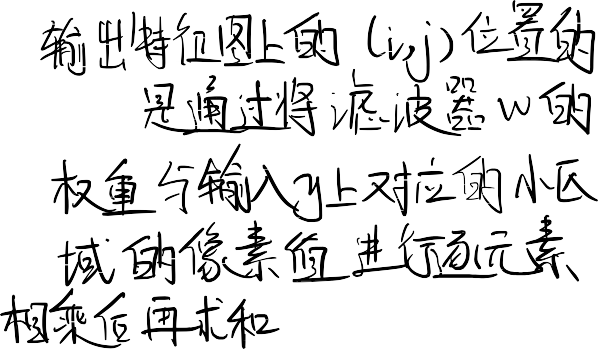 输出特征图上的(i,j)位置的
是通过将滤波器w的
权重与输入y上对应的小区
域的像素值进行元素
相乘后再求和